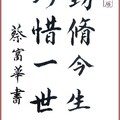 勤脩今生
惜一世
蔡富華書